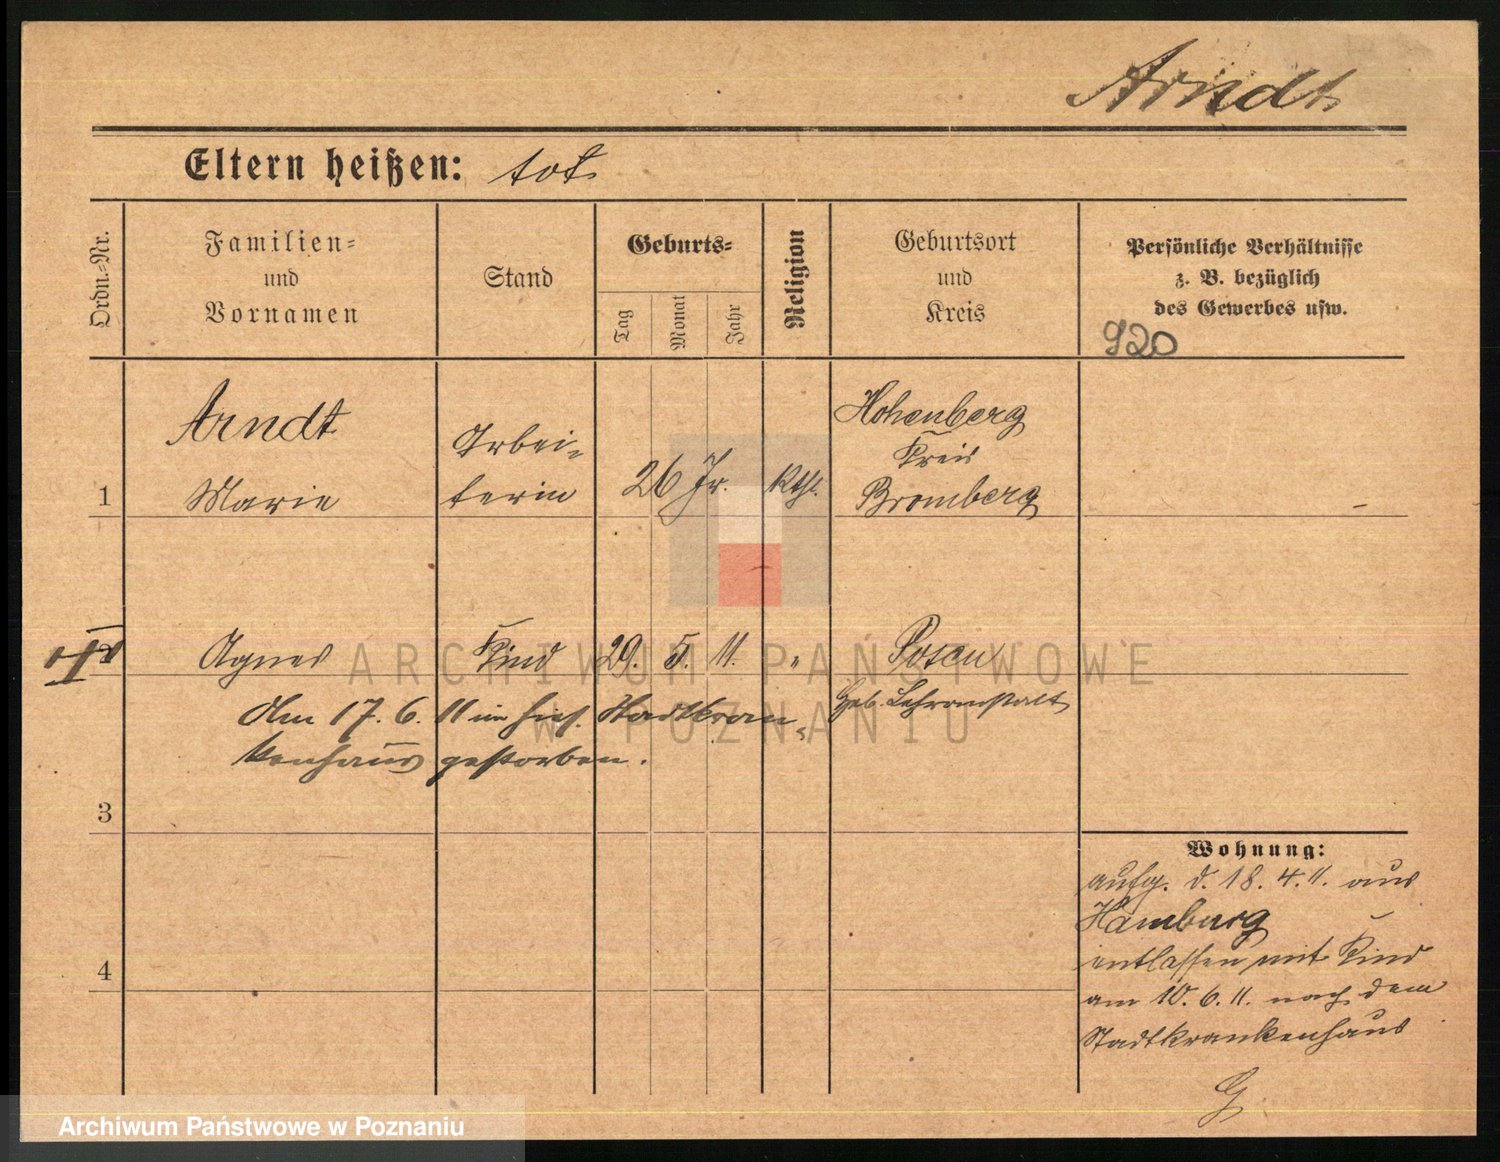 Arndt
Eltern heißen: tot
Ordn.=Nr.
Familien=
und
Vornamen
Stand
Geburts=
Tag
Monat
Jahr
Religion
Geburtsort
und
Kreis
Persönliche Verhältnisse
z. B. bezüglich
des Gewerbes usw.
920
1
Arndt
Marie
Arbei=
terin
26 Jr.
Kth.
Hohenberg
Kreis
Bromberg
–
2
Agnes
Kind
29. 5. 11.
"
Posen
Heb. Lehranstalt
Am 17. 6. 11 im hies. Stadtkran=
kenhaus gestorben.
3
4
Wohnung:
aufg. d. 18. 4. 11. aus
Hamburg
entlassen mit Kind
am 10. 6. 11. nach dem
Stadtkrankenhaus
G
ARCHIWUM PAŃSTWOWE
W POZNANIU
Archiwum Państwowe w Poznaniu